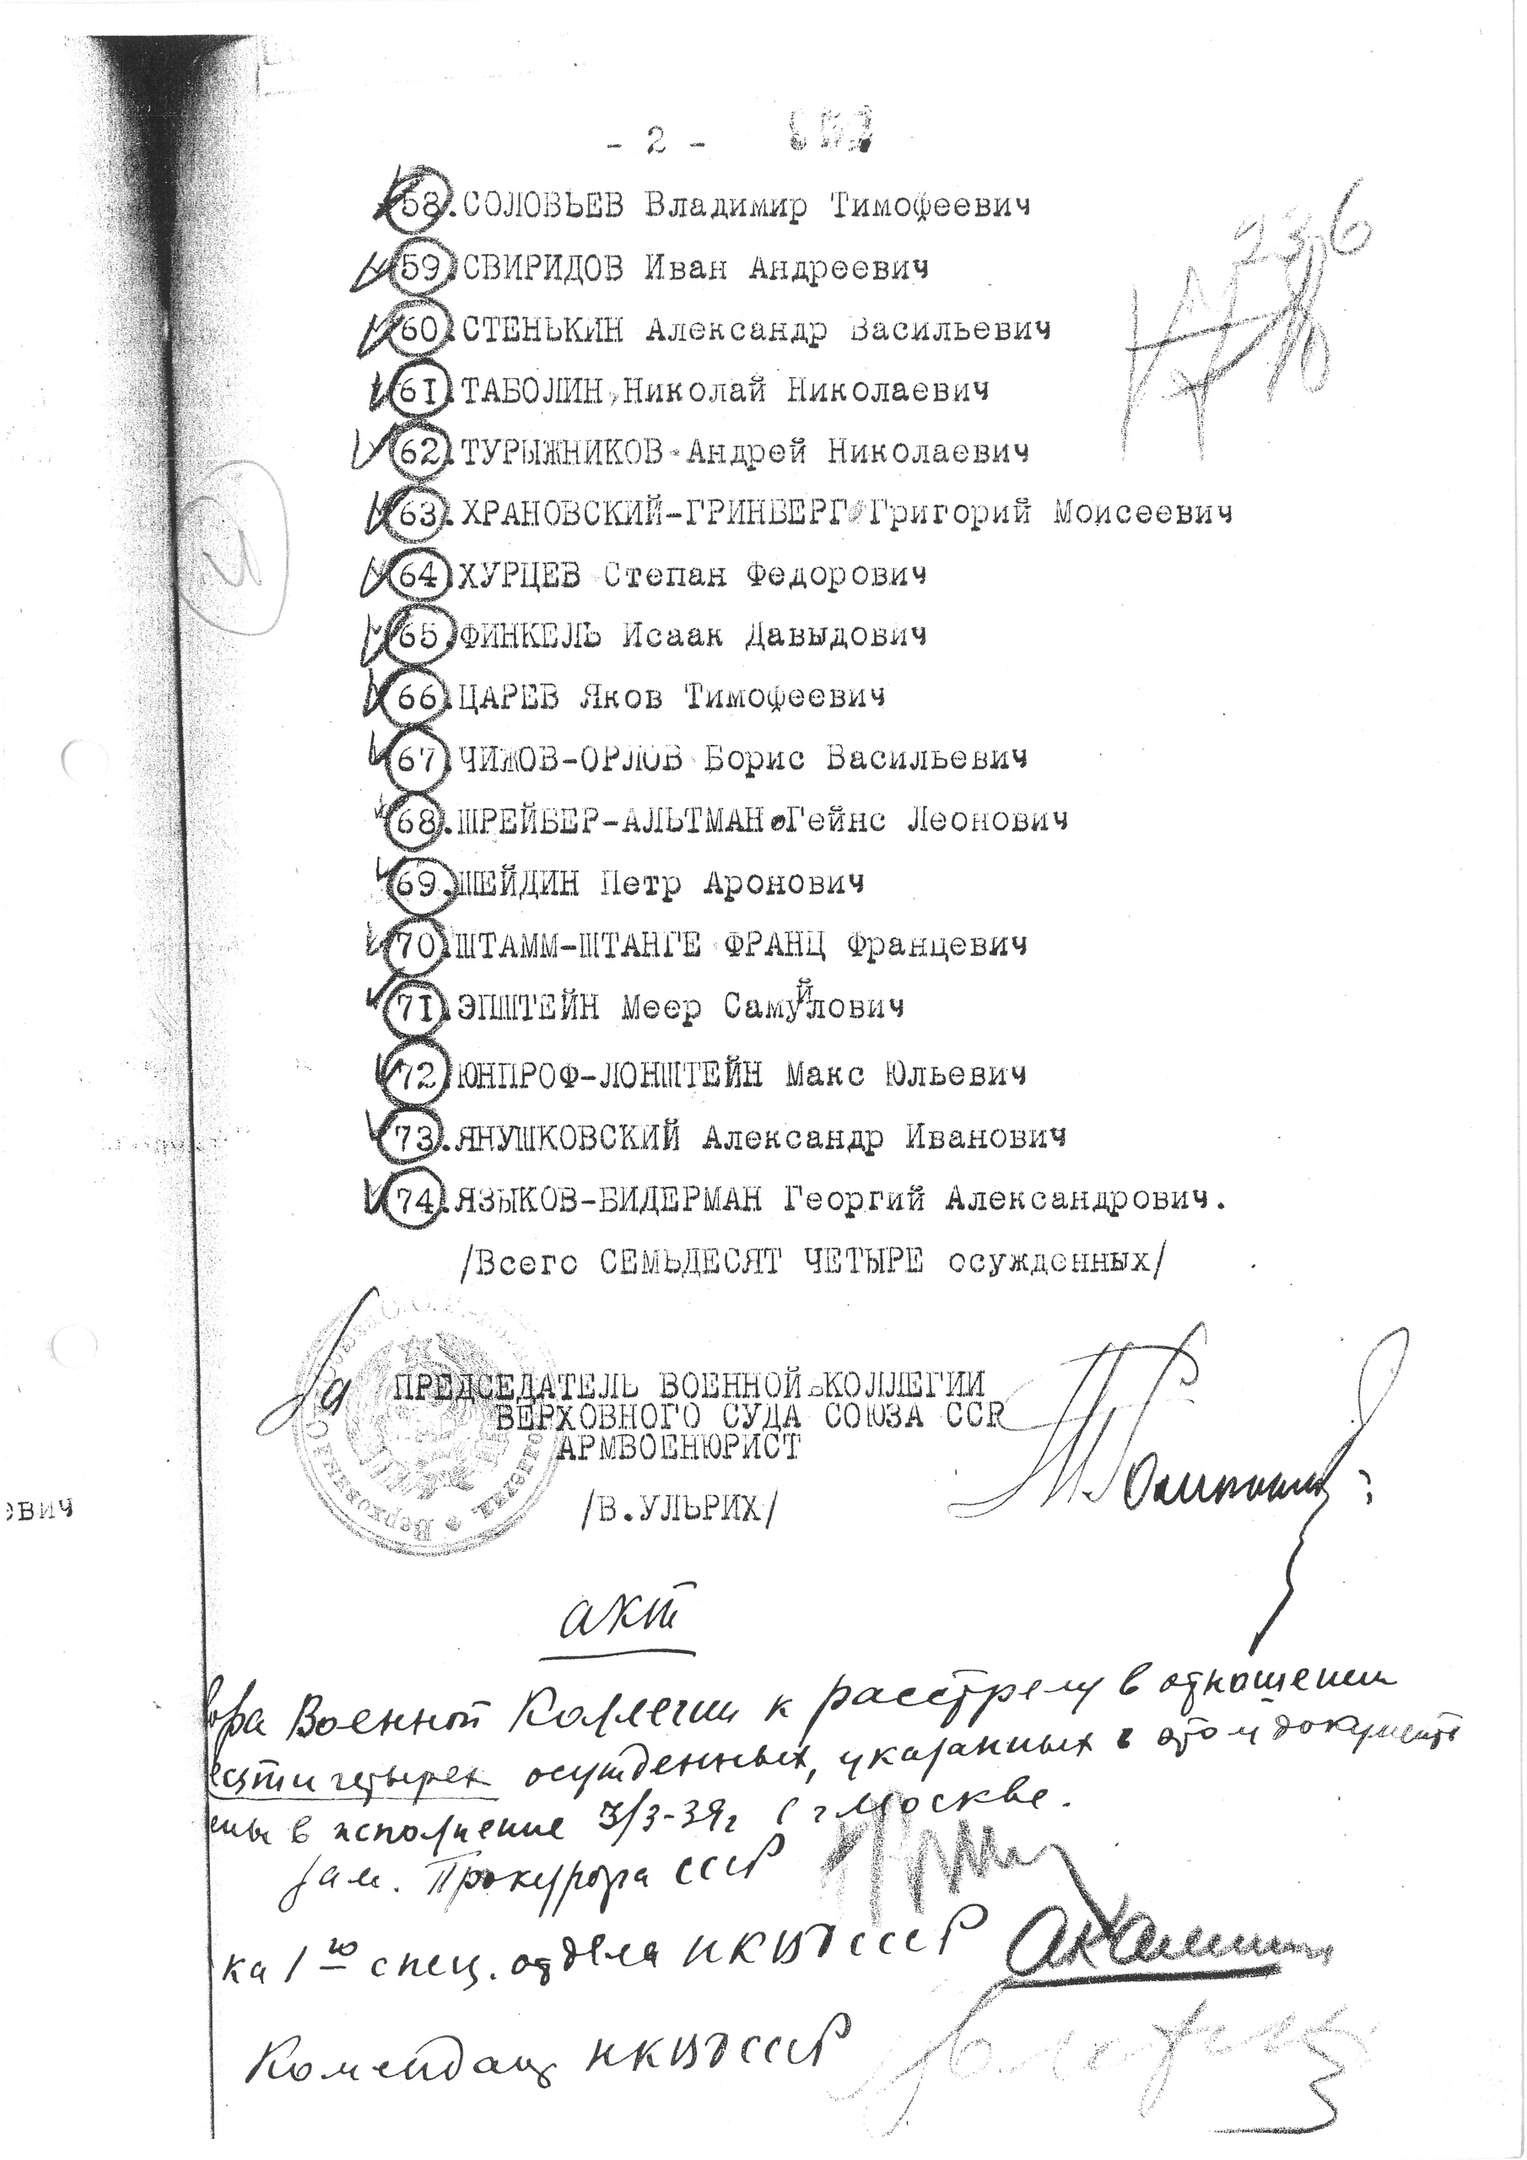 - 2 -
236
58. СОЛОВЬЕВ Владимир Тимофеевич
59. СВИРИДОВ Иван Андреевич
60. СТЕНЬКИН Александр Васильевич
61. ТАБОЛИН Николай Николаевич
62. ТУРЫЖНИКОВ Андрей Николаевич
63. ХРАНОВСКИЙ-ГРИНБЕРГ Григорий Моисеевич
64. ХУРЦЕВ Степан Федорович
65. ФИНКЕЛЬ Исаак Давыдович
66. ЦАРЕВ Яков Тимофеевич
67. ЧИЖОВ-ОРЛОВ Борис Васильевич
68. ШРЕЙБЕР-АЛЬТМАН Гейнс Леонович
69. ШЕЙДИН Петр Аронович
70. ШТАММ-ШТАНГЕ ФРАНЦ Францевич
71. ЭПШТЕЙН Меер Самуйлович
72. ЮНПРОФ-ЛОНШТЕЙН Макс Юльевич
73. ЯНУШКОВСКИЙ Александр Иванович
74. ЯЗЫКОВ-БИДЕРМАН Георгий Александрович.
/Всего СЕМЬДЕСЯТ ЧЕТЫРЕ осужденных/
За ПРЕДСЕДАТЕЛЬ ВОЕННОЙ КОЛЛЕГИИ
ВЕРХОВНОГО СУДА СОЮЗА ССР
АРМВОЕНЮРИСТ
/В.УЛЬРИХ/
евич
акт
Военной Коллегии к расстрелу в отношении
четырех осужденных, указанных в этом документе
в исполнение 3/3-39г в г Москве.
Зам. Прокурора СССР
ка 1го спец. отдела НКВД СССР
Комендант НКВД СССР